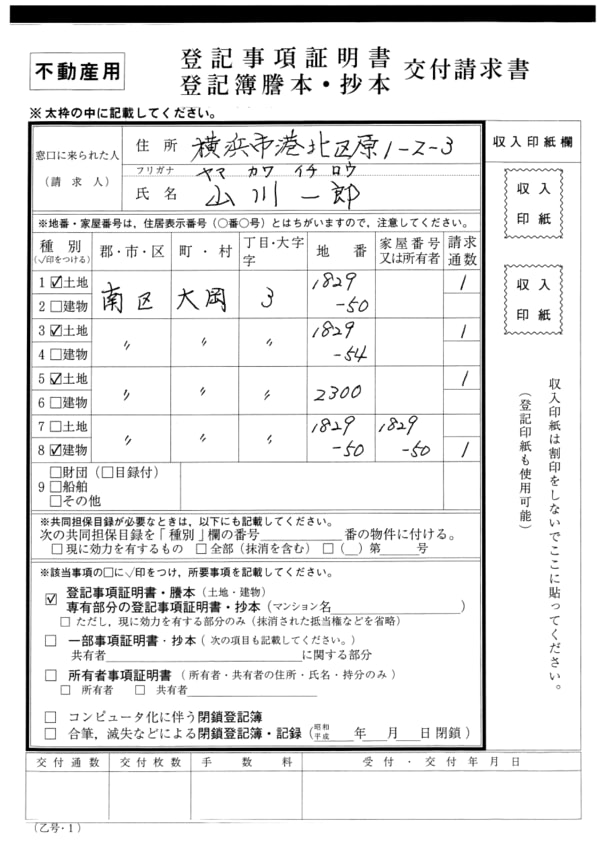 不動産用
登記事項証明書
登記簿謄本・抄本 交付請求書
※太枠の中に記載してください。
窓口に来られた人
（請求人）
住所 横浜市港北区原1-2-3
フリガナ ヤマ カワ イチ ロウ
氏名 山川 一郎
収入印紙欄
収入
印紙
収入
印紙
※地番・家屋番号は，住居表示番号（〇番〇号）とはちがいますので，注意してください。
種別
（√印をつける）
郡・市・区
町・村
丁目・大字
字
地番
家屋番号
又は所有者
請求
通数
1 ☑土地 南区 大岡 3 1829 1
2 □建物 -50
3 ☑土地 〃 〃 〃 1829 1
4 □建物 -54
5 ☑土地 〃 〃 〃 2300 1
6 □建物
7 □土地 〃 〃 〃 1829 1829
8 ☑建物 -50 -50 1
9 □財団（□目録付）
□船舶
□その他
収入印紙は割印をしないでここに貼ってください。
（登記印紙も使用可能）
※共同担保目録が必要なときは，以下にも記載してください。
次の共同担保目録を「種別」欄の番号＿＿＿番の物件に付ける。
□現に効力を有するもの □全部（抹消を含む） □（＿）第＿＿＿号
※該当事項の□に√印をつけ，所要事項を記載してください。
☑ 登記事項証明書・謄本（土地・建物）
専有部分の登記事項証明書・抄本（マンション名＿＿＿）
□ ただし，現に効力を有する部分のみ（抹消された抵当権などを省略）
□ 一部事項証明書・抄本（次の項目も記載してください。）
共有者＿＿＿に関する部分
□ 所有者事項証明書（所有者・共有者の住所・氏名・持分のみ）
□ 所有者 □ 共有者＿＿＿
□ コンピュータ化に伴う閉鎖登記簿
□ 合筆，滅失などによる閉鎖登記簿・記録（昭和 平成＿＿年＿＿月＿＿日閉鎖）
交付通数 交付枚数 手数料 受付・交付年月日
（乙号・1）